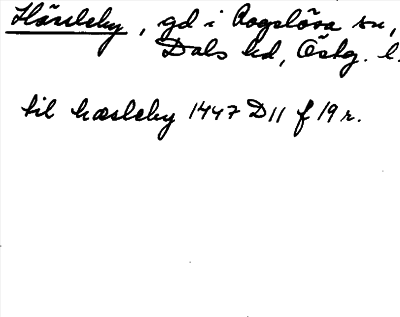 Härsleby, gd i Rogslösa sn,
Dals hd, Östg. l.
til hæsleby 1447 D 11 f 19 r.